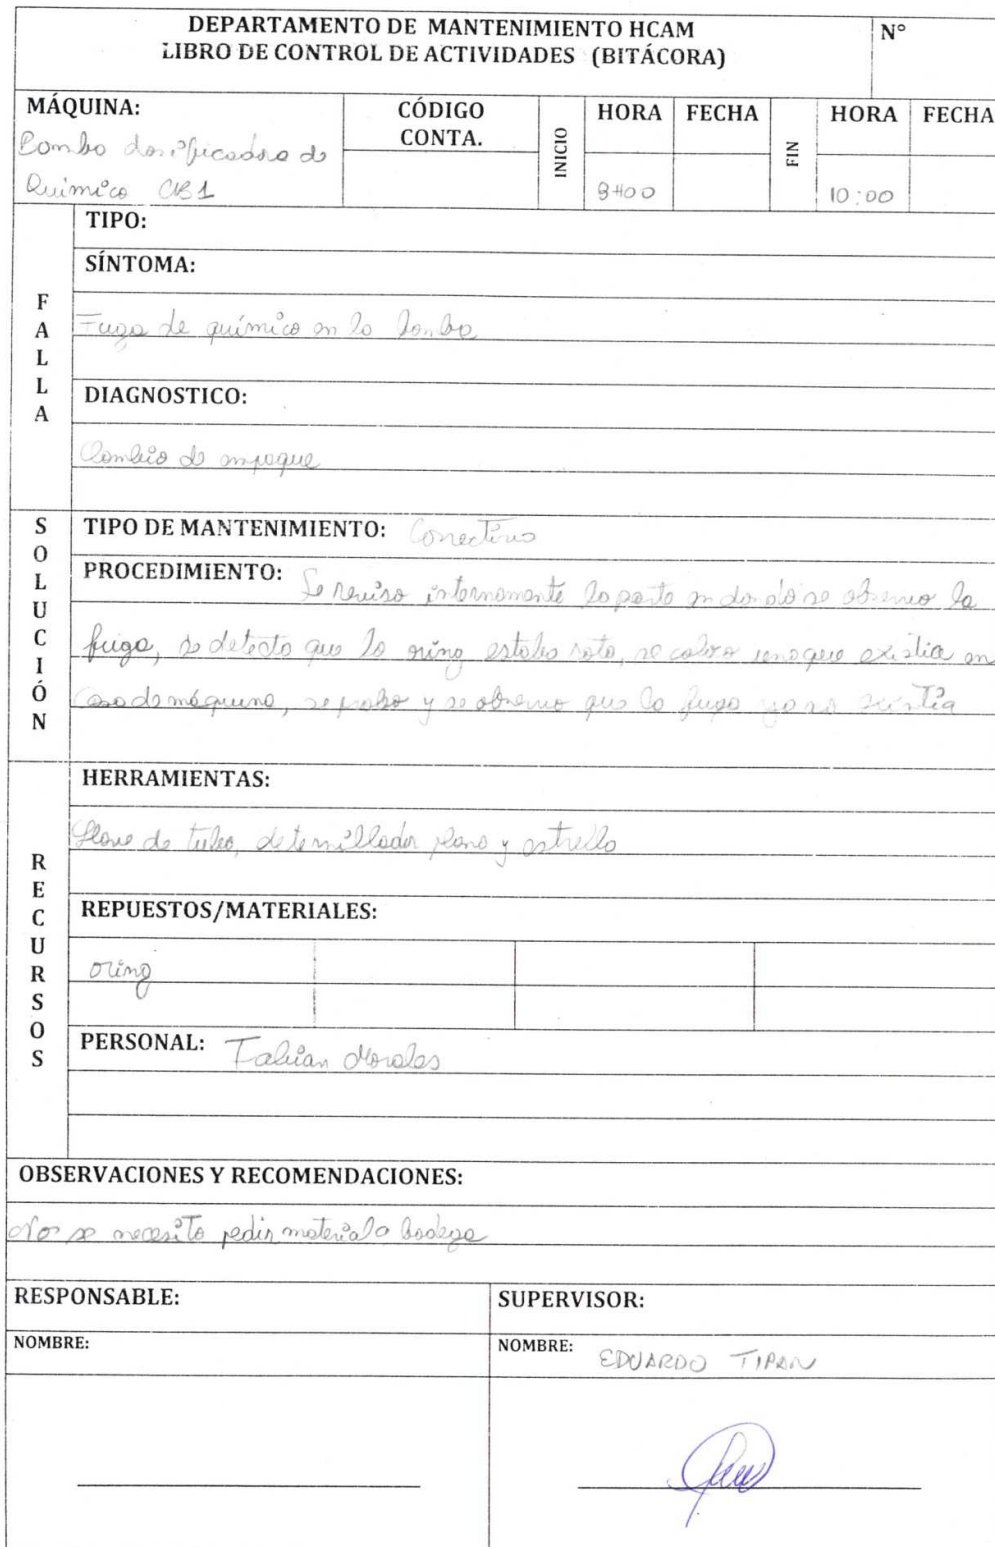 DEPARTAMENTO DE MANTENIMIENTO HCAM
LIBRO DE CONTROL DE ACTIVIDADES (BITÁCORA)
N°
MÁQUINA:
Bomba dosificadora de
Quimico CB1
CÓDIGO
CONTA.
INICIO
HORA
FECHA
8H00
FIN
HORA
FECHA
10:00
FALLA
TIPO:
SÍNTOMA:
Fuga de químico en la bomba
DIAGNOSTICO:
Cambio de empaque
SOLUCIÓN
TIPO DE MANTENIMIENTO: Correctivo
PROCEDIMIENTO: Se reviso internamente la parte en donde se observo la
fuga, se detecto que lo oring estaba roto, se coloco uno que existia en
Casa de máquina, se probo y se observo que la fuga ya no existia
RECURSOS
HERRAMIENTAS:
Llave de tubo, destornillador plano y estrella
REPUESTOS/MATERIALES:
oring
PERSONAL: Fabian Morales
OBSERVACIONES Y RECOMENDACIONES:
No se necesito pedir material a bodega
RESPONSABLE:
SUPERVISOR:
NOMBRE:
NOMBRE: EDUARDO TIPAN